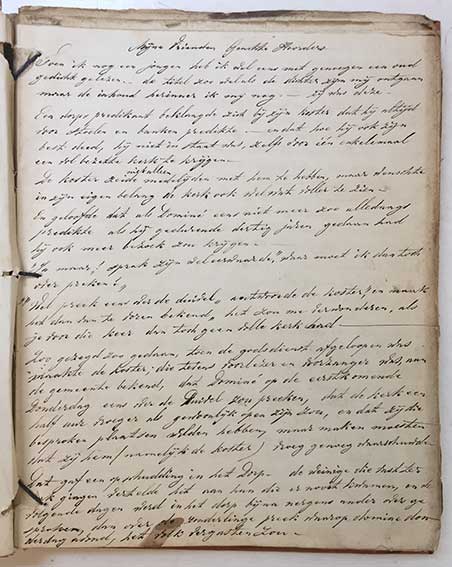 Mijne Vrienden Geachte Hoorders
Toen ik nog een jongen heb ik wel eens met genoegen een oud
gedicht gelezen. — de titel zoo wel als de dichter zijn mij ontgaan
maar de inhoud herinner ik mij nog — zij was deze —
Een dorps predikant beklaagde zich bij zijn koster dat hij altijd
voor stoelen en banken predikte — en dat hoe hij ook zijn
best deed, hij niet in staat was, zelfs voor één enkele maal
een vol bezette kerk te krijgen —
De koster zeide medelijden met hem te hebben, maar wenschte
in zijn eigen belang de kerk ook wel wat voller te zien —
En geloofde dat als Dominé eens niet meer zoo alledaags
predikte als hij gedurende dertig jaren gedaan had
hij ook meer bezoek zou krijgen —
"Ja maar! sprak zijn wel eerwaarde, waar moet ik dan toch
over preken?"
"Wel preek eens over de duivel, antwoorde de koster, en maak
het dan van te voren bekend, het zou me verwonderen, als
je voor die keer dan toch geen volle kerk had. —
Zoo gezegd zoo gedaan, toen de godsdienst afgeloopen was
maakte de koster, die tevens voorlezer en voorzanger was, aan
de gemeente bekend, dat Dominé op de eerstkomende
zondag eens over de Duivel zou preeken, dat de kerk een
half uur vroeger als gewoonlijk open zijn zou, en dat zij die
besproken plaatsen wilden hebben, maar maken moesten
dat zij hem (namelijk de koster) vroeg genoeg waarschuwden
Dat gaf een opschudding in het Dorp — de weinige die
kerk gingen vertelde het aan hun die er nooit kwamen, en de
volgende dagen werd in het dorp bijna nergens anders over ge
sproken, dan over de zonderlinge preek waarop domine
het volk vergasten zou —